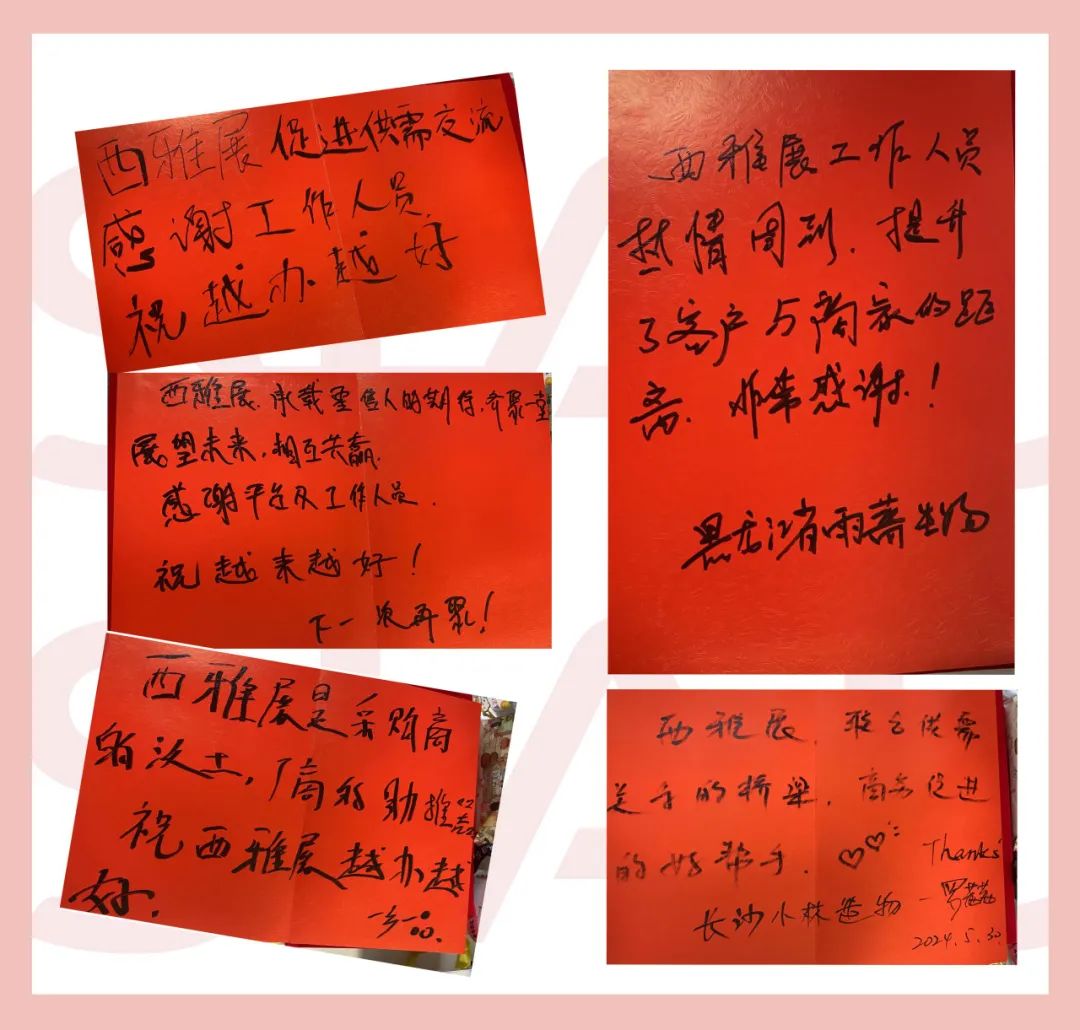 西雅展 促进供需交流
感谢工作人员
祝越办越好
西雅展.承载零售人的期待,齐聚一堂
展望未来,相互共赢.
感谢平台及工作人员.
祝越来越好!
下一次再聚!
西雅展是采购商
的沃土,厂商的助推器
祝西雅展越办越
好.
西雅展工作人员
热情周到.提升
了客户与商家的距
离.非常感谢!
黑龙江省雨蕎生物
西雅展,联合供需
关系的桥梁,商务促进
的好帮手. Thanks
长沙小林造物 — 罗
2024.5.30